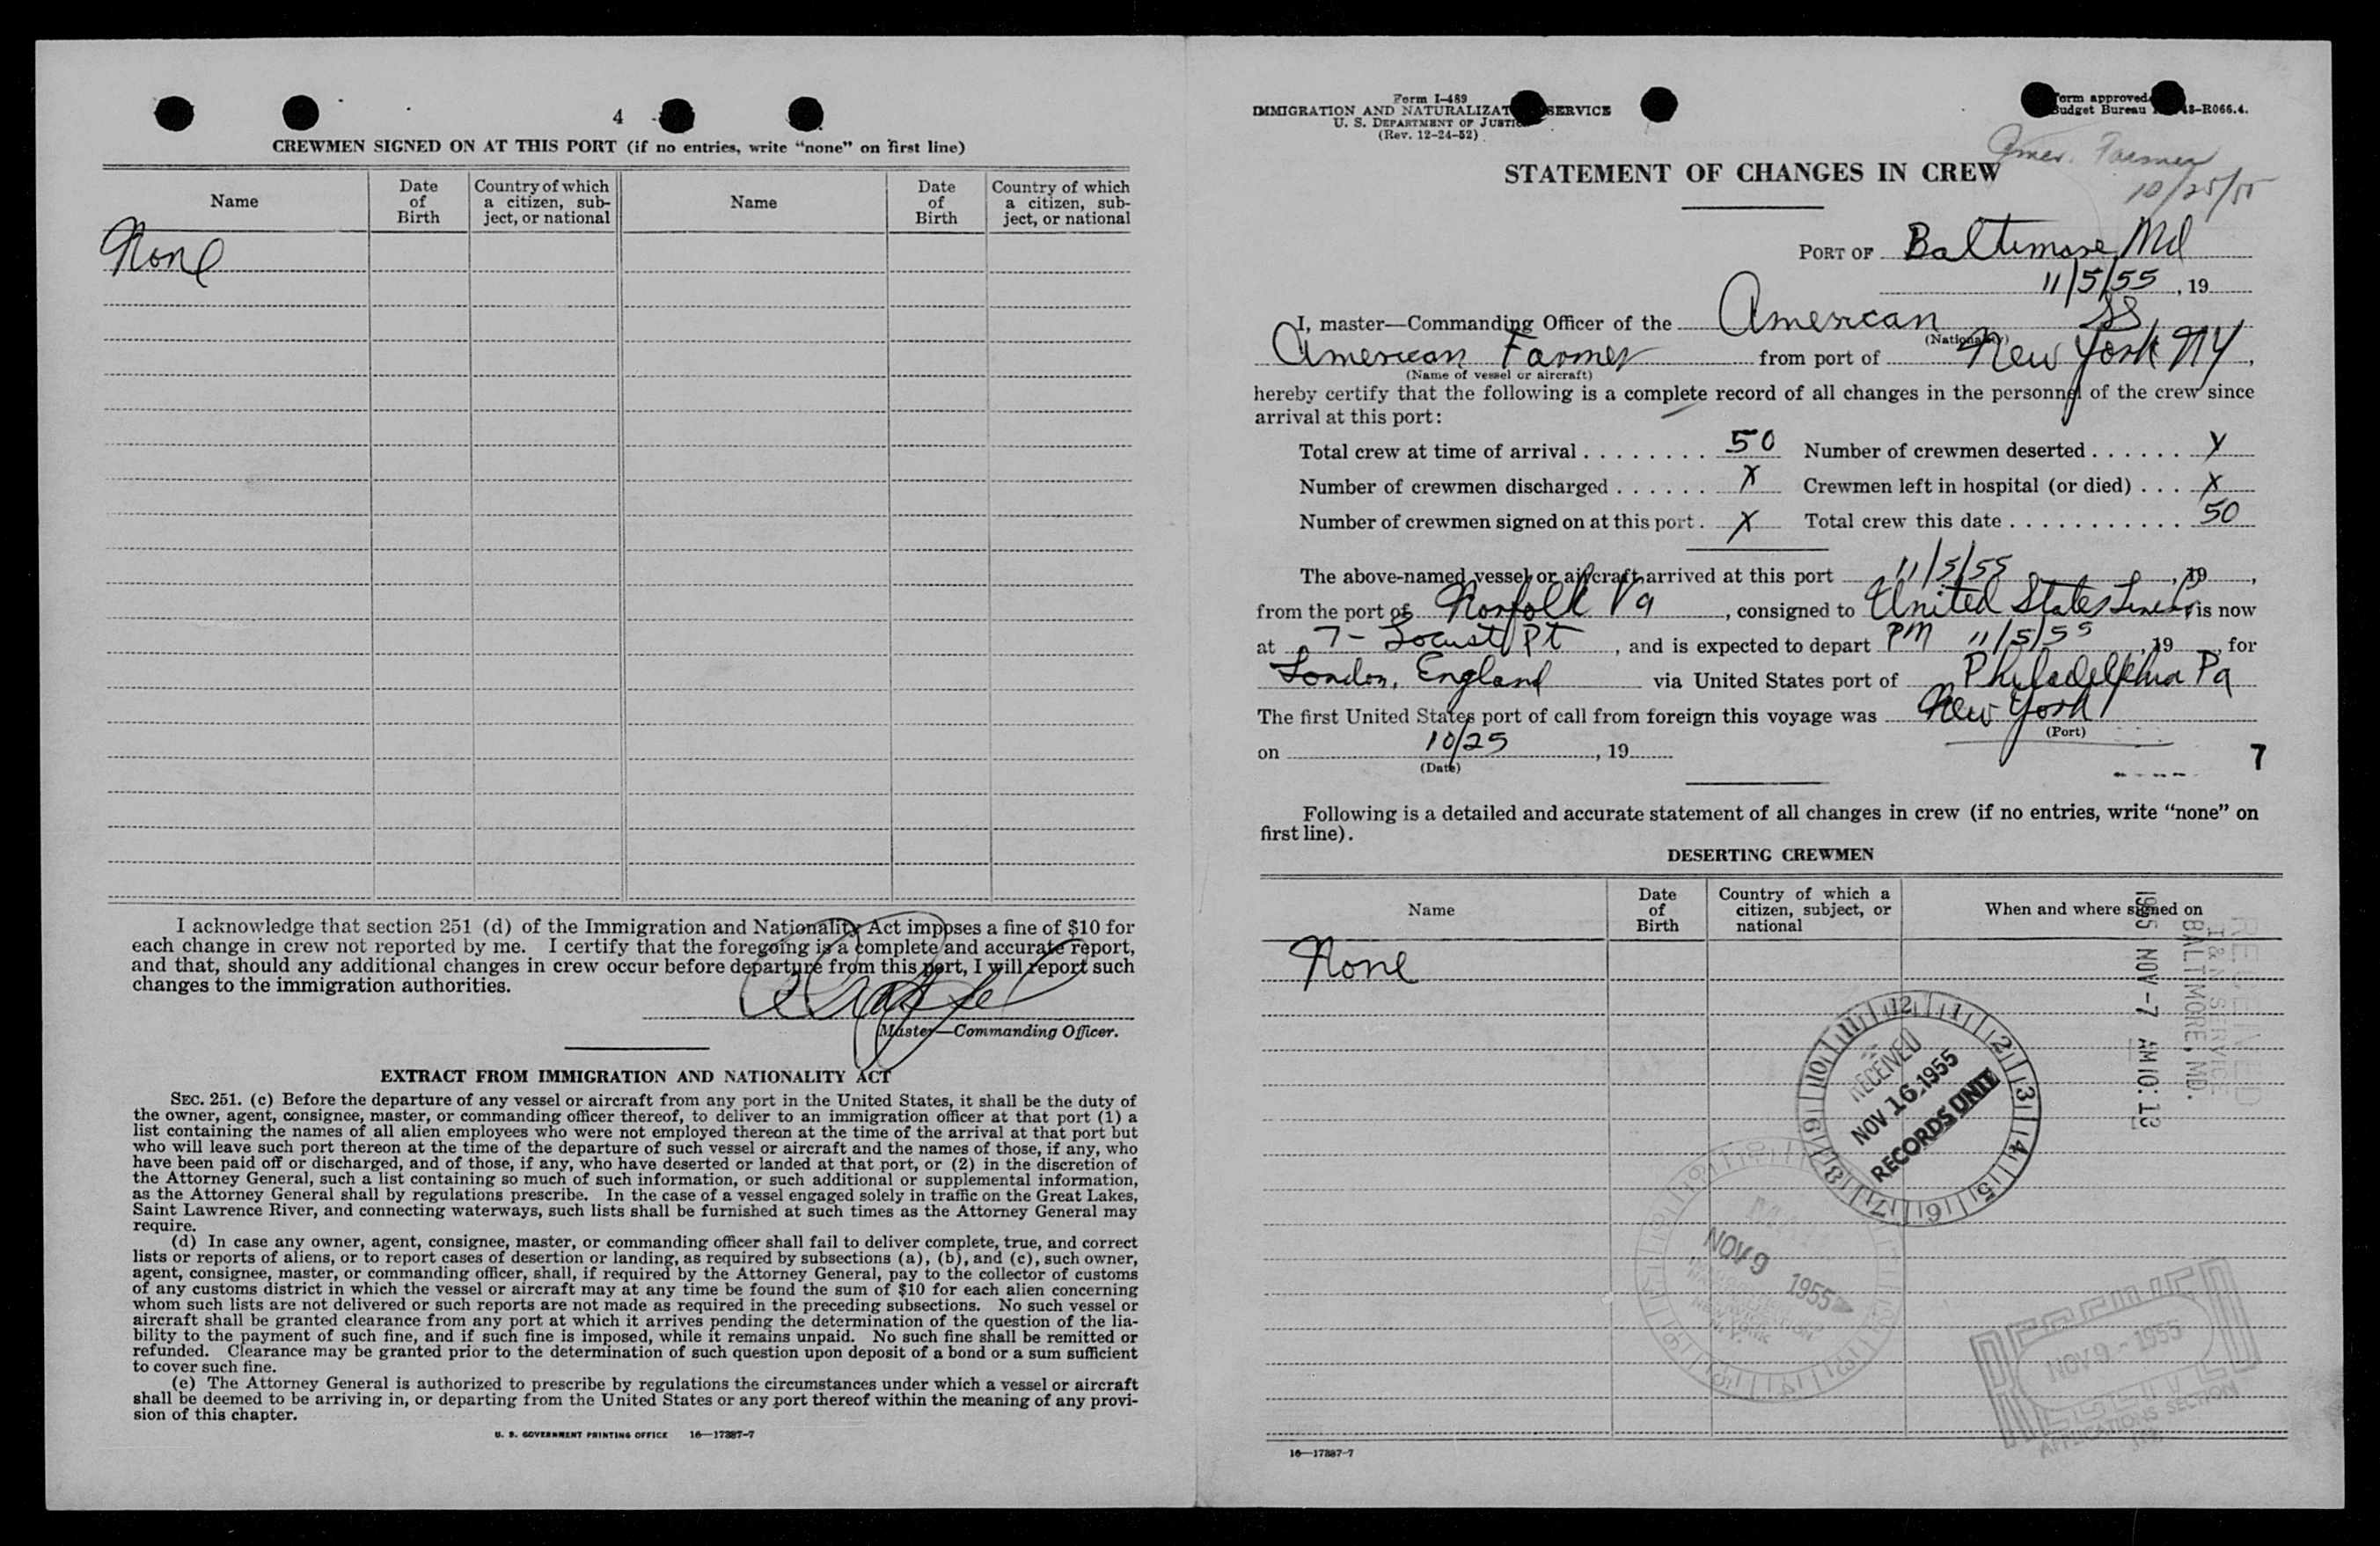 4
CREWMEN SIGNED ON AT THIS PORT (if no entries, write “none” on first line)
Name
Date of Birth
Country of which a citizen, subject, or national
Name
Date of Birth
Country of which a citizen, subject, or national
None
I acknowledge that section 251 (d) of the Immigration and Nationality Act imposes a fine of $10 for
each change in crew not reported by me. I certify that the foregoing is a complete and accurate report,
and that, should any additional changes in crew occur before departure from this port, I will report such
changes to the immigration authorities.
Master—Commanding Officer.
EXTRACT FROM IMMIGRATION AND NATIONALITY ACT
SEC. 251. (c) Before the departure of any vessel or aircraft from any port in the United States, it shall be the duty of
the owner, agent, consignee, master, or commanding officer thereof, to deliver to an immigration officer at that port (1) a
list containing the names of all alien employees who were not employed thereon at the time of the arrival at that port but
who will leave such port thereon at the time of the departure of such vessel or aircraft and the names of those, if any, who
have been paid off or discharged, and of those, if any, who have deserted or landed at that port, or (2) in the discretion of
the Attorney General, such a list containing so much of such information, or such additional or supplemental information,
as the Attorney General shall by regulations prescribe. In the case of a vessel engaged solely in traffic on the Great Lakes,
Saint Lawrence River, and connecting waterways, such lists shall be furnished at such times as the Attorney General may
require.
(d) In case any owner, agent, consignee, master, or commanding officer shall fail to deliver complete, true, and correct
lists or reports of aliens, or to report cases of desertion or landing, as required by subsections (a), (b), and (c), such owner,
agent, consignee, master, or commanding officer, shall, if required by the Attorney General, pay to the collector of customs
of any customs district in which the vessel or aircraft may at any time be found the sum of $10 for each alien concerning
whom such lists are not delivered or such reports are not made as required in the preceding subsections. No such vessel or
aircraft shall be granted clearance from any port at which it arrives pending the determination of the question of the lia-
bility to the payment of such fine, and if such fine is imposed, while it remains unpaid. No such fine shall be remitted or
refunded. Clearance may be granted prior to the determination of such question upon deposit of a bond or a sum sufficient
to cover such fine.
(e) The Attorney General is authorized to prescribe by regulations the circumstances under which a vessel or aircraft
shall be deemed to be arriving in, or departing from the United States or any port thereof within the meaning of any provi-
sion of this chapter.
U. S. GOVERNMENT PRINTING OFFICE 16—17387-7
Form I-489
IMMIGRATION AND NATURALIZAT SERVICE
U. S. DEPARTMENT OF JUSTIC
(Rev. 12-24-52)
orm approved
udget Bureau 43-R066.4.
Amer. Farmer
10/25/55
STATEMENT OF CHANGES IN CREW
PORT OF Baltimore, Md
11/5/55, 19
I, master—Commanding Officer of the American SS
(Nationality)
American Farmer from port of New York NY,
(Name of vessel or aircraft)
hereby certify that the following is a complete record of all changes in the personnel of the crew since
arrival at this port:
Total crew at time of arrival . . . . . . . . 50 Number of crewmen deserted . . . . . . X
Number of crewmen discharged . . . . . . X Crewmen left in hospital (or died) . . . X
Number of crewmen signed on at this port . X Total crew this date . . . . . . . . . . . 50
The above-named vessel or aircraft arrived at this port 11/5/55, 19 ,
from the port of Norfolk Va, consigned to United States Lines, is now
at 7- Locust Pt, and is expected to depart PM 11/5/55, 19 , for
London, England via United States port of Philadelphia Pa
The first United States port of call from foreign this voyage was New York
(Port)
on 10/25, 19
(Date)
7
Following is a detailed and accurate statement of all changes in crew (if no entries, write “none” on
first line).
DESERTING CREWMEN
Name
Date of Birth
Country of which a citizen, subject, or national
When and where signed on
None
RECEIVED
I & N SERVICE
BALTIMORE, MD.
1955 NOV -7 AM 10: 13
12 1 2 3 4 5 6 7 8 9 10 11
RECEIVED
NOV 16 1955
RECORDS UNIT
NOV 9 1955
RECEIVED
NOV 9 - 1955
APPLICATIONS SECTION
16—17387-7